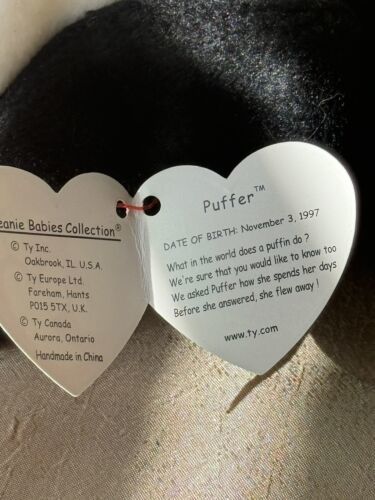 Beanie Babies Collection®
© Ty Inc.
Oakbrook, IL. U.S.A.
© Ty Europe Ltd.
Fareham, Hants
PO15 5TX, U.K.
© Ty Canada
Aurora, Ontario
Handmade in China
Puffer™
DATE OF BIRTH: November 3, 1997
What in the world does a puffin do ?
We're sure that you would like to know too
We asked Puffer how she spends her days
Before she answered, she flew away !
www.ty.com